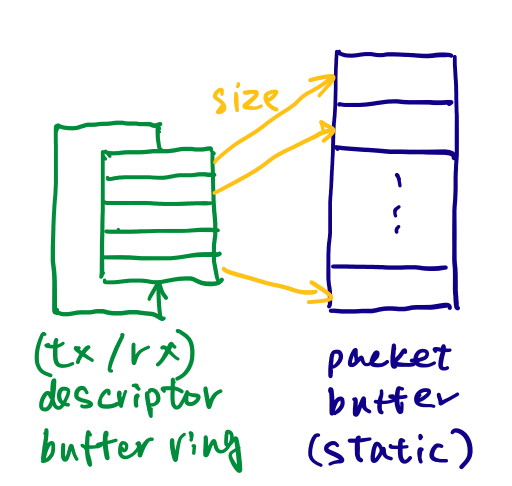 size
(tx/rx)
descriptor
buffer ring
packet
buffer
(static)